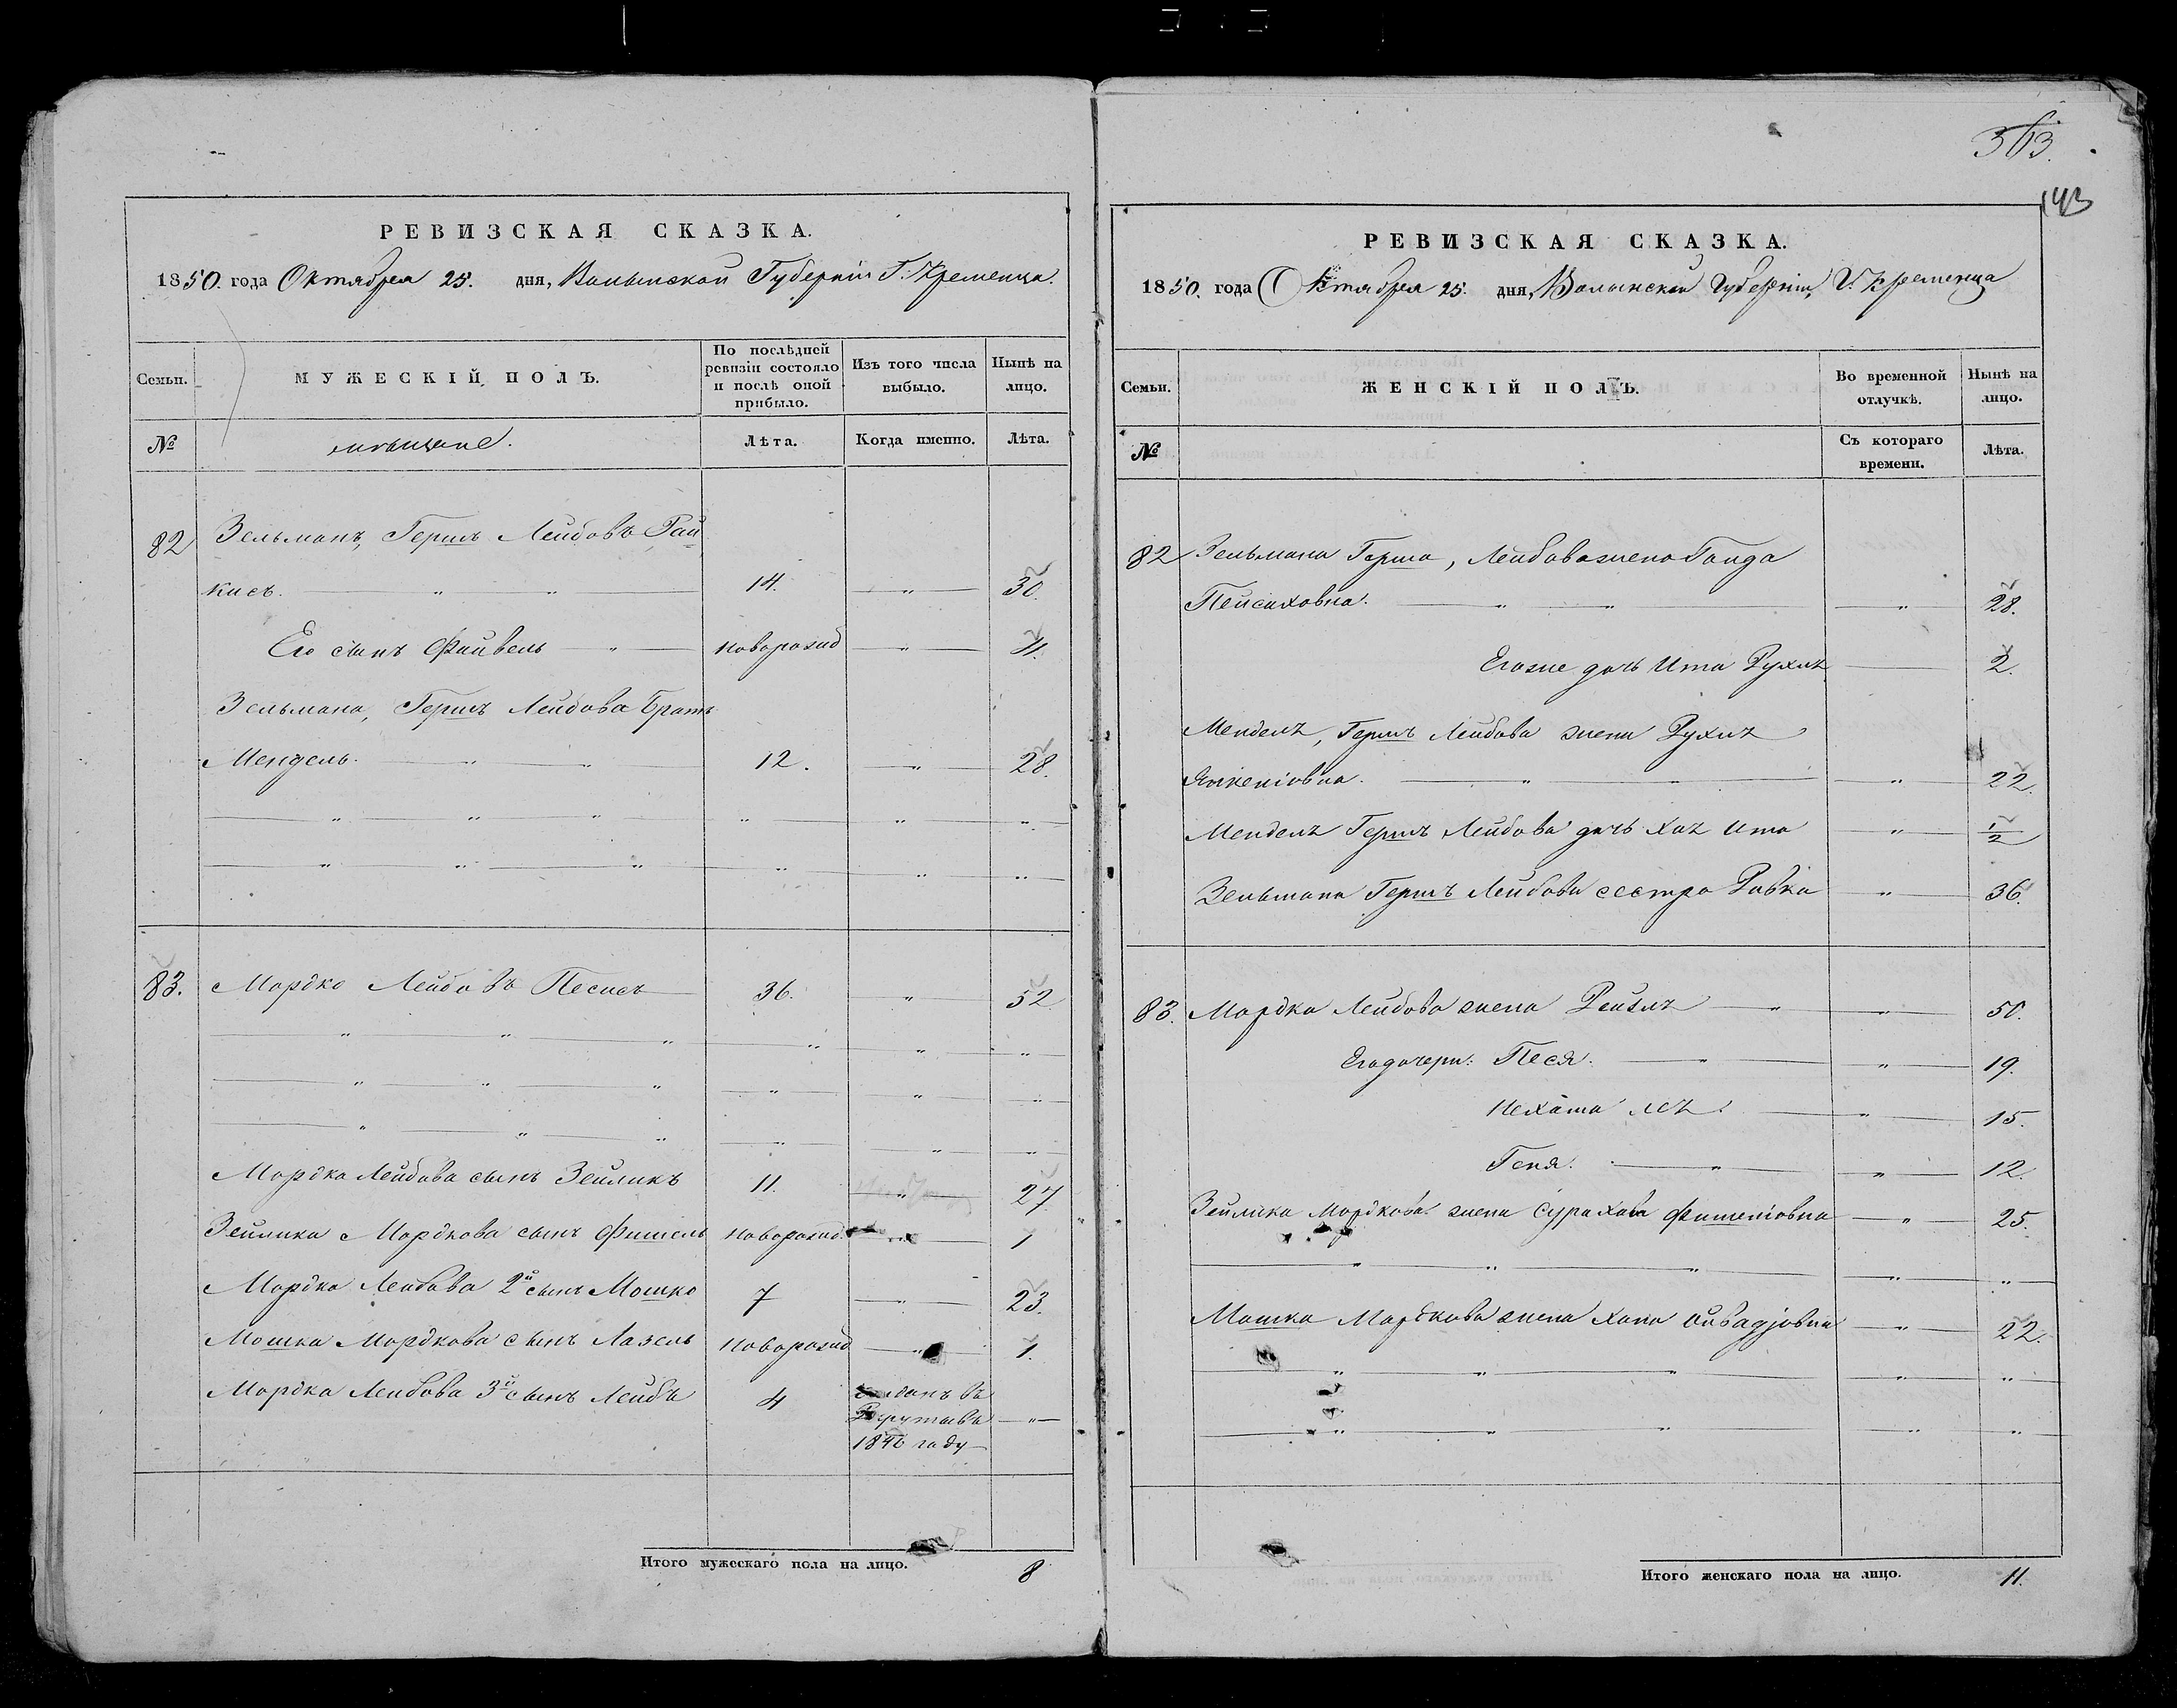 363.
143
РЕВИЗСКАЯ СКАЗКА.
1850. года Октября 25. дня, Волынской Губернiи Г. Кременца.
Семьи.
МУЖЕСКІЙ ПОЛЪ.
По послѣдней ревизіи состояло и послѣ оной прибыло.
Изъ того числа выбыло.
Нынѣ на лицо.
№
мѣщане.
Лѣта.
Когда именно.
Лѣта.
82 Зельманъ, Гершъ Лейбовъ Рай
кисъ. 14. 30.
Его сынъ Файвель новорожд 4.
Зельмана, Гершъ Лейбова братъ
Мендель. 12. 28.
83. Мордко Лейбовъ Песисъ 36. 52
Мордка Лейбова сынъ Зейликъ 11. 27.
Зейлика Мордкова сынъ Фишель новорожд. 1
Мордка Лейбова 2й сынъ Мошко 7 23.
Мошка Мордкова сынъ Лазель новорожд 1.
Мордка Лейбова 3й сынъ Лейба 4
въ
1846 году
Итого мужескаго пола на лицо. 8
РЕВИЗСКАЯ СКАЗКА.
1850. года Октября 25. дня, Волынской Губернiи, Г. Кременца
Семьи.
ЖЕНСКІЙ ПОЛЪ.
Во временной отлучкѣ.
Нынѣ на лицо.
№
Съ котораго времени.
Лѣта.
82 Зельмана Герша, Лейбова жена
Пейсиховна. 28.
Егоже дочь Ита Рухля 2.
Менделя, Гершъ Лейбова жена Рухля
22.
Менделя Гершъ Лейбова дочь Хая Ита 1/2
Зельмана Гершъ Лейбова сестра Ривка 36.
83. Мордка Лейбова жена Рейзля 50.
Его дочери: Песя. 19.
Нехама Лея. 15.
Геня. 12.
Зейлика Мордкова жена Сура Хава Фишелiовна 25.
Мошка Мордкова жена Хана 22.
Итого женскаго пола на лицо. 11.